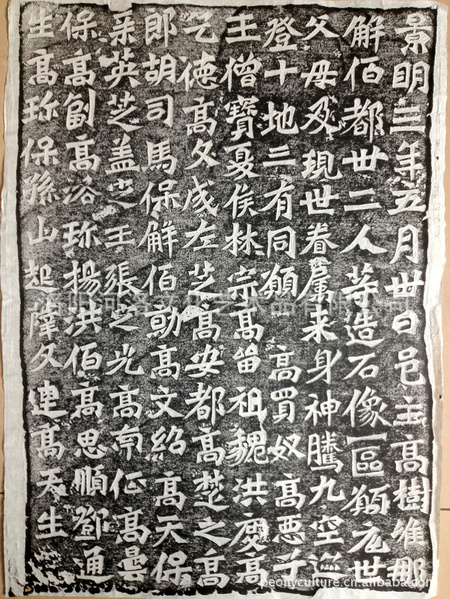 景明三年五月卅日邑主高樹維那
解佰都卅二人等造石像一區願元世
父母及現世眷屬來身神騰九空迹
登十地三有同願 高買奴高惡子
王僧寶夏侯林宗高留祖魏洪慶高
乞德高文成左芝高安都高楚之高
郎胡司馬保解佰勍高文紹高天保
英芝盖王張芝光高南征高曇
保高副高洛珎楊洪佰高思順鄧通
生高珎保孫山起文達高天生
peonyculture.cn.alibaba.com